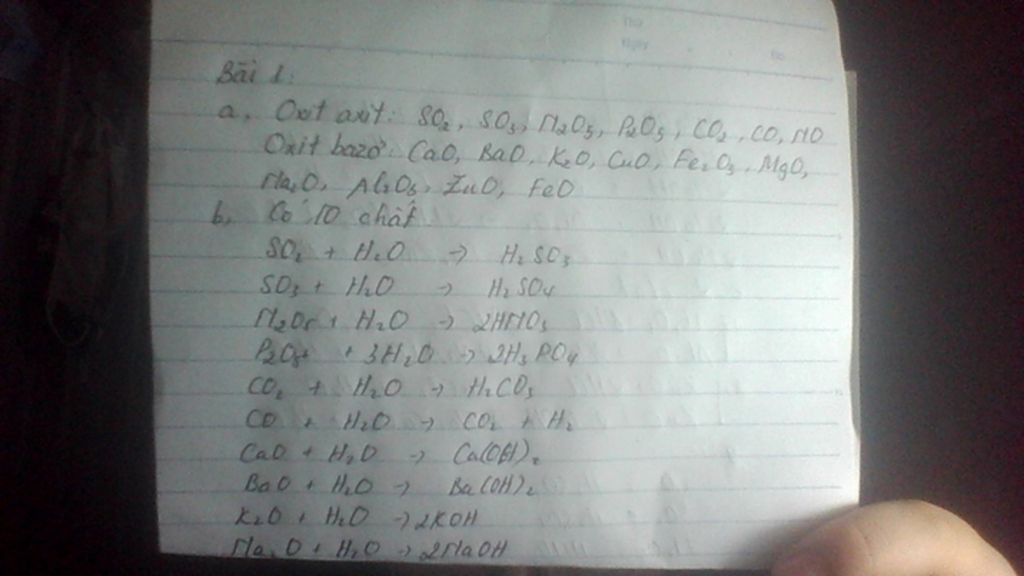 Thứ
Ngày
Bài 1:
a, Oxit axit: SO₂, SO₃, N₂O₅, P₂O₅, CO₂, CO, NO
Oxit bazơ: CaO, BaO, K₂O, CuO, Fe₂O₃, MgO,
Na₂O, Al₂O₃, ZnO, FeO
b, Có 10 chất
SO₂ + H₂O → H₂SO₃
SO₃ + H₂O → H₂SO₄
N₂O₅ + H₂O → 2HNO₃
P₂O₅ + 3H₂O → 2H₃PO₄
CO₂ + H₂O → H₂CO₃
CO + H₂O → CO₂ + H₂
CaO + H₂O → Ca(OH)₂
BaO + H₂O → Ba(OH)₂
K₂O + H₂O → 2KOH
Na₂O + H₂O → 2NaOH